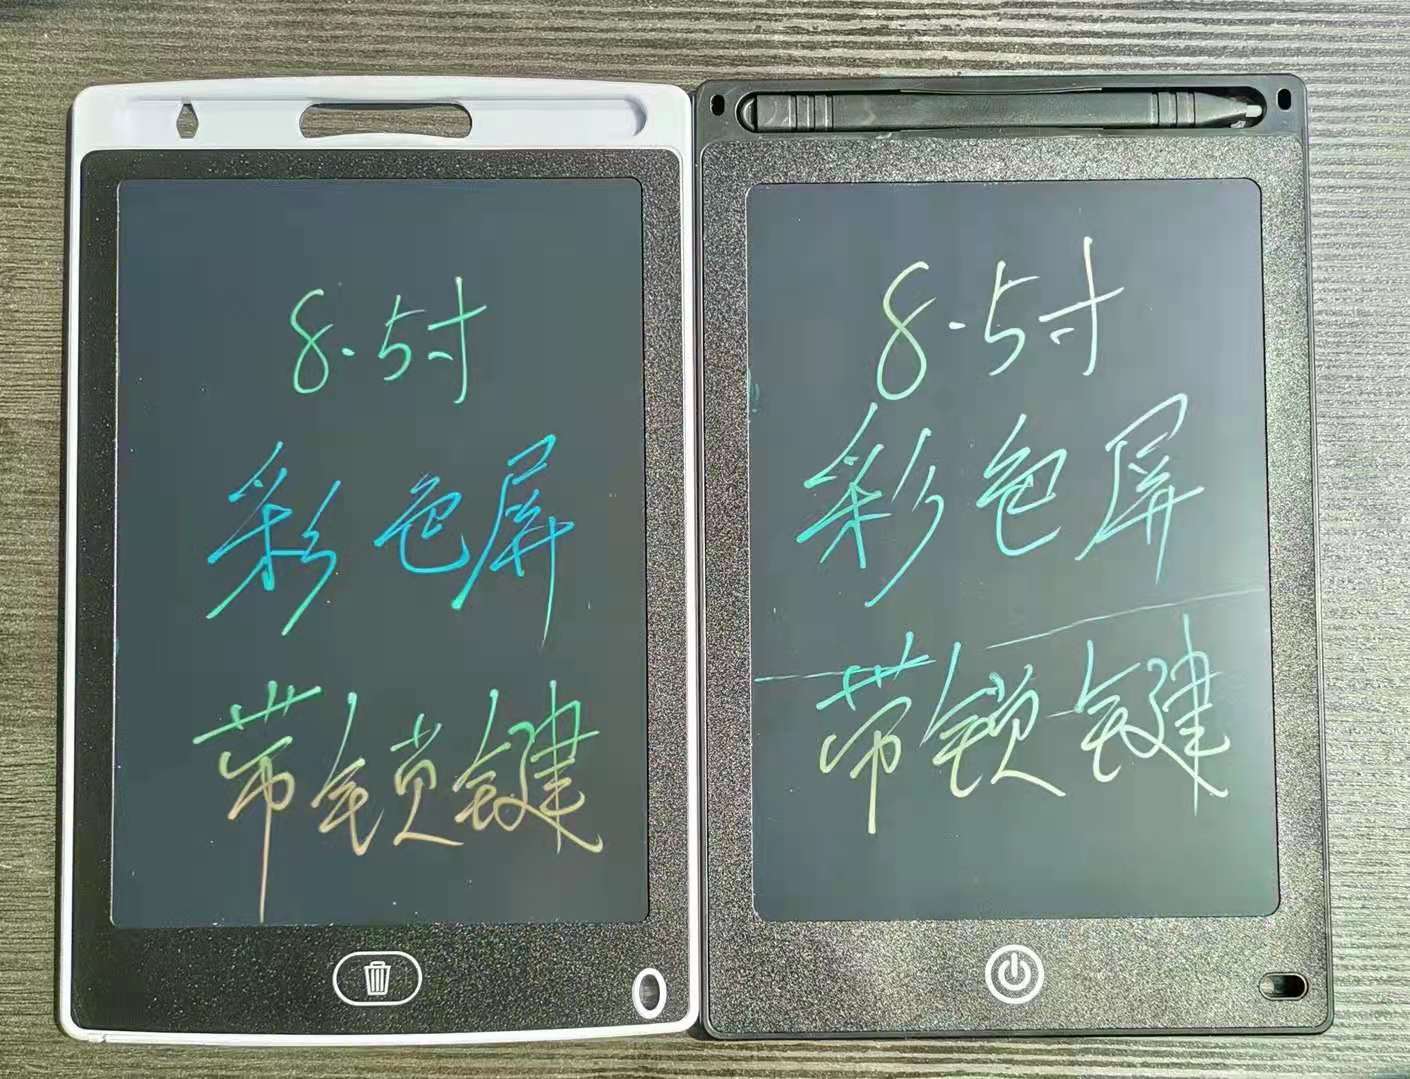 8.5寸
彩色屏
带锁键
8.5寸
彩色屏
带锁键